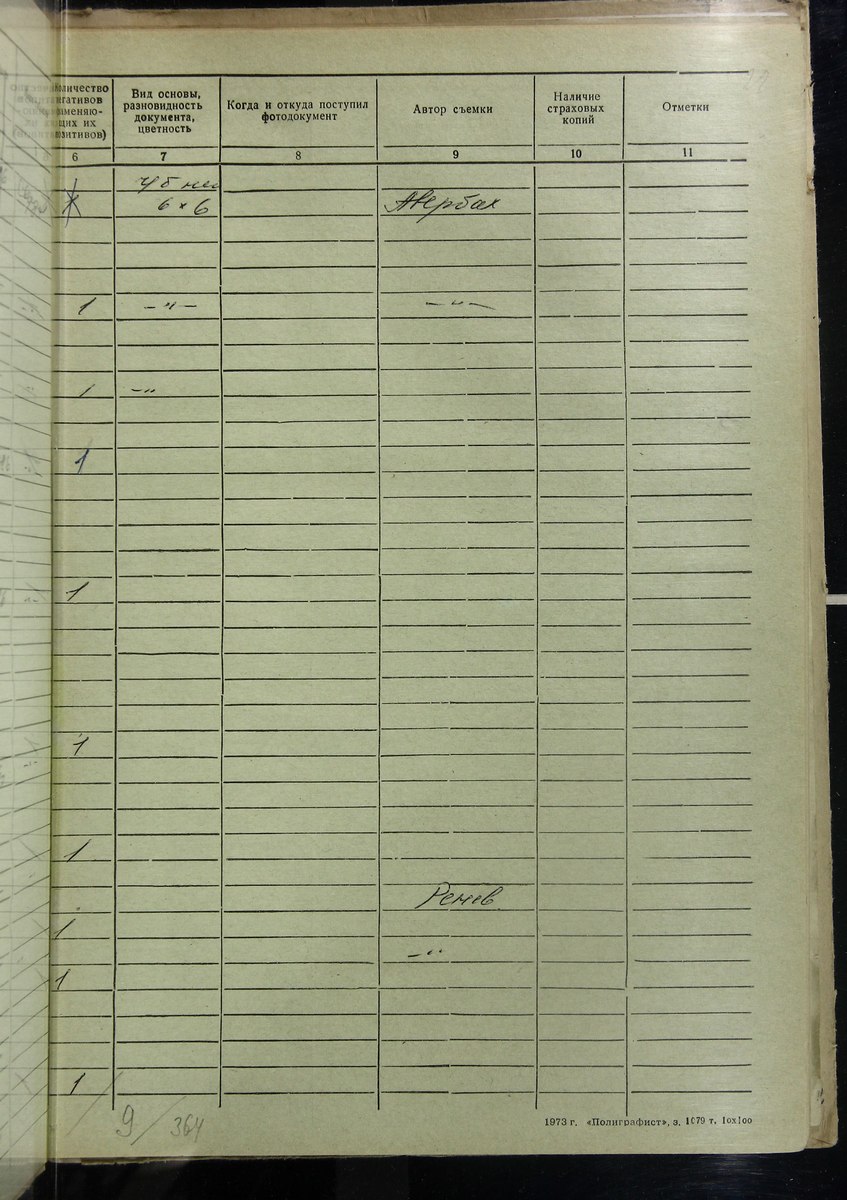 оличество
егативов
заменяю-
щих их
позитивов)
Вид основы,
разновидность
документа,
цветность
Когда и откуда поступил
фотодокумент
Автор съемки
Наличие
страховых
копий
Отметки
6 7 8 9 10 11
чб нег
6×6 Авербах
1 –"– –"–
1 –"
1
1
1
1
Ренев
1
–"
1
1
9/364
1973 г. «Полиграфист», з. 1079 т. 10х100